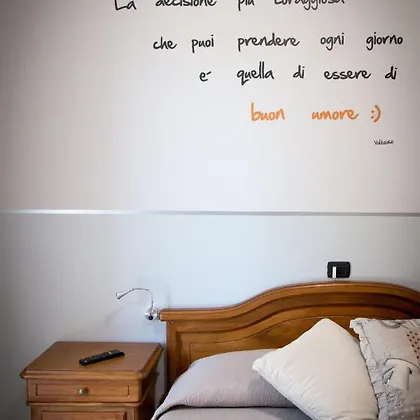 La decisione più coraggiosa
che puoi prendere ogni giorno
e´ quella di essere di
buon umore :)
Voltaire